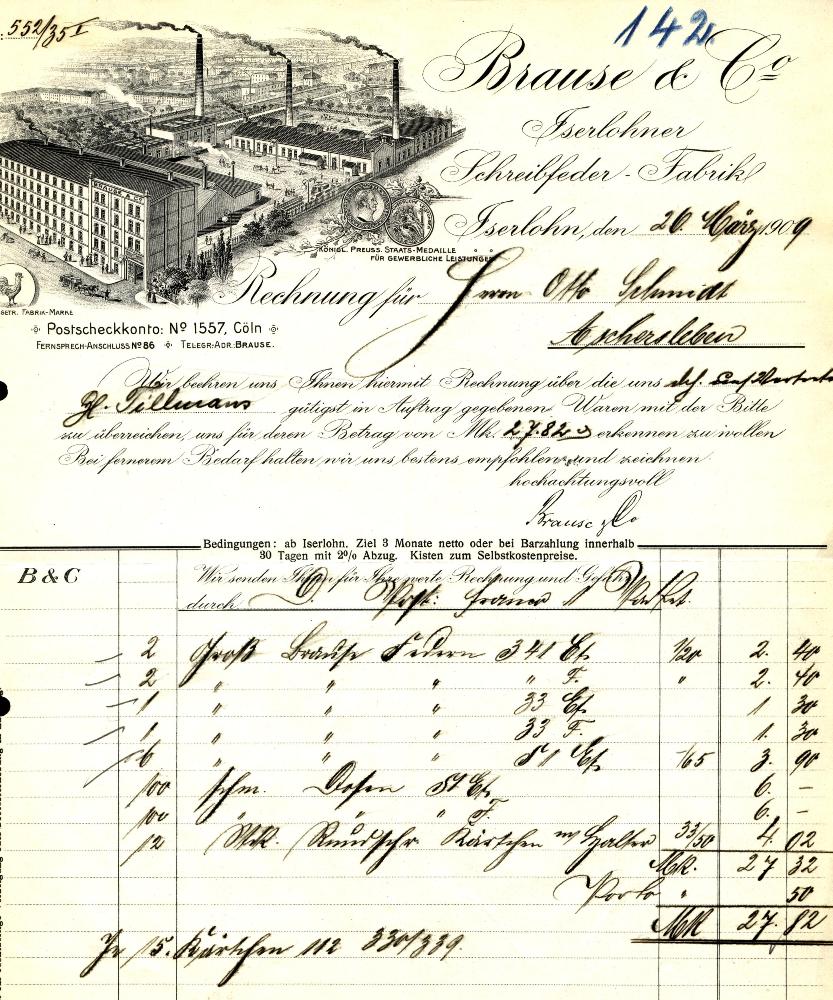 552/35 I
142
Brause & Co
Iserlohner
Schreibfeder-Fabrik
Iserlohn, den 26. März 1909
BRAUSE & Co
KÖNIGL. PREUSS. STAATS-MEDAILLE
FÜR GEWERBLICHE LEISTUNGEN
GETR. FABRIK-MARKE
Rechnung für Herrn Otto Schmidt
Aschersleben
Postscheckkonto: No 1557, Cöln
FERNSPRECH-ANSCHLUSS No 86 TELEGR: ADR: BRAUSE.
Wir beehren uns Ihnen hiermit Rechnung über die uns
H. Tillmans gütigst in Auftrag gegebenen Waren mit der Bitte
zu überreichen, uns für deren Betrag von Mk. 27.82 erkennen zu wollen
Bei fernerem Bedarf halten wir uns bestens empfohlen und zeichnen
hochachtungsvoll
Brause & Co
Bedingungen: ab Iserlohn. Ziel 3 Monate netto oder bei Barzahlung innerhalb
30 Tagen mit 2% Abzug. Kisten zum Selbstkostenpreise.
B & C
Wir senden Ihnen für Ihre werte Rechnung und Gefahr
durch D. Post: franco 1 Packet.
2 Groß Brause Federn 341 Ef. 1/20 2. 40
2 " " " " F. " 2. 40
1 " " " 33 Ef. 1 30
1 " " " 33 F. 1. 30
6 " " " 51 Ef. -/65 3. 90
100 schm. Dosen Ef. 6. –
100 " " F. 6. –
12 Rundschr Kärtchen m/ Halter 33/50 4. 02
Mk. 27 32
Porto " 50
MK 27. 82
Je 15. Kärtchen 112 330/339.